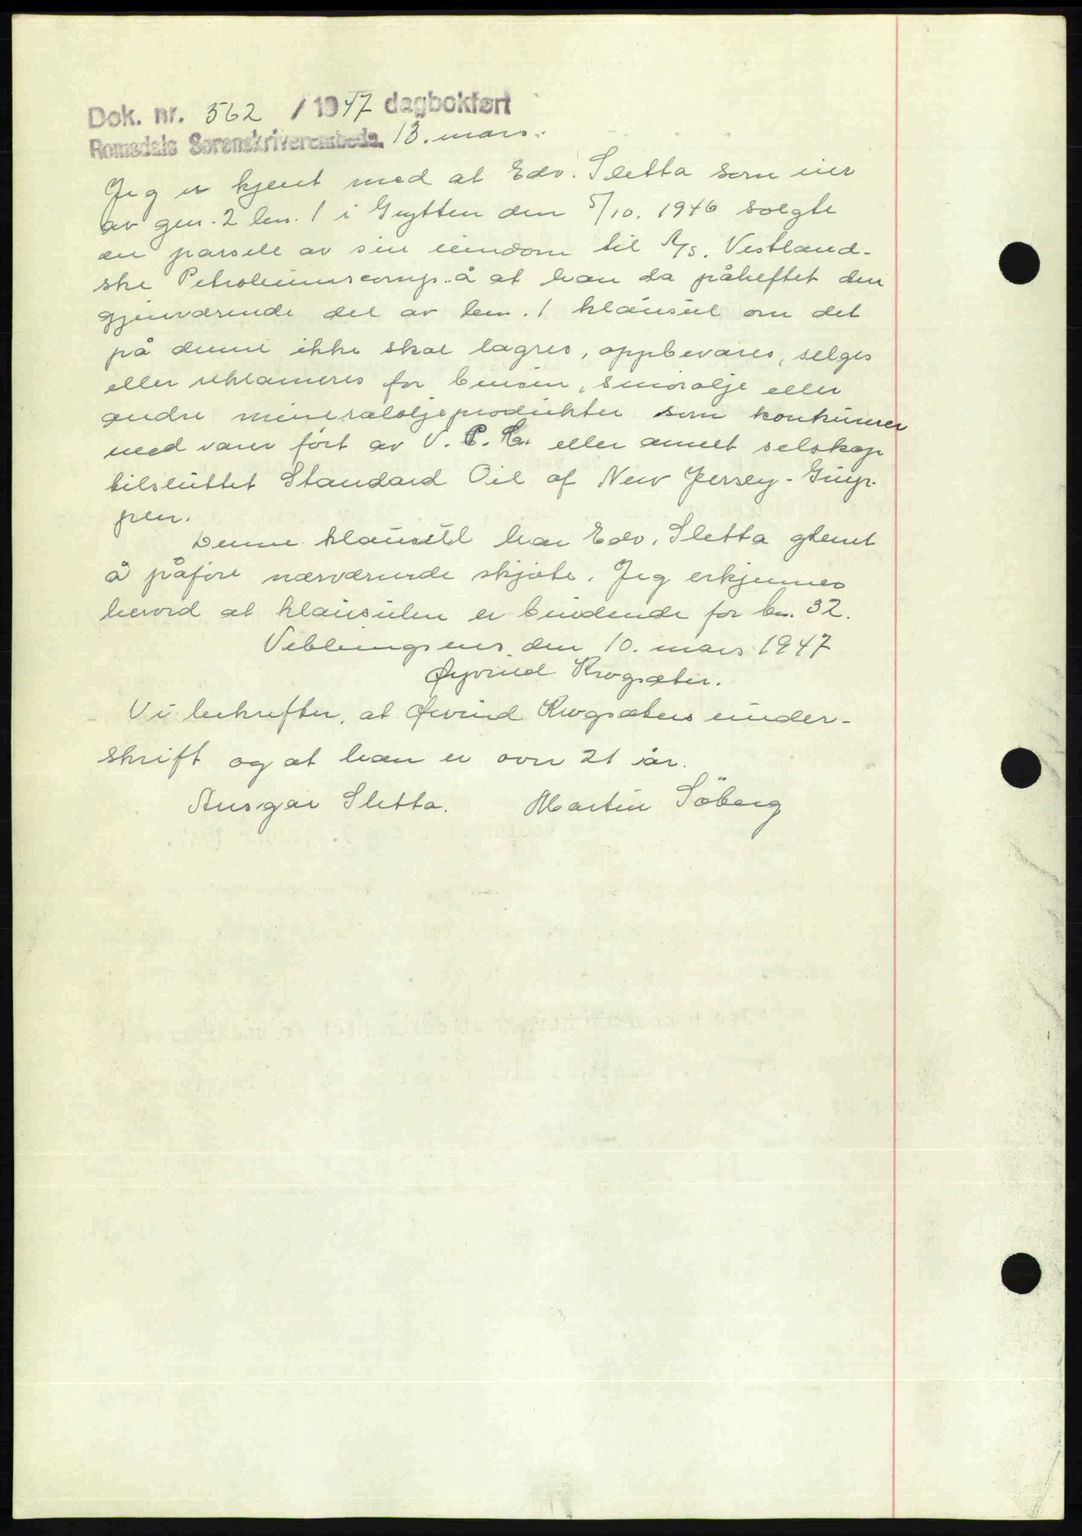 Dok. nr. 562 / 1947 dagbokført
Romsdals Sorenskriverembede 13. mars.
Jeg er kjent med at Edv. Sletta som eier
av gnr. 2 bn. 1 i Grytten den 5/10. 1946 solgte
en parsell av sin eiendom til A/S. Vestland-
ske Petroleumscomp. å at han da påheftet den
gjenværende del av bnr. 1 klausul om det
på denne ikke skal lagres, oppbevares, selges
eller reklameres for bensin, smörolje eller
andre mineraloljeprodukter som konkurrer
med varer fört av V. P. C. eller annet selskap
tilsluttet Standard Oil of New Jersey-Grup-
pen.
Denne klausul har Edv. Sletta glemt
å påföre nærværende skjöte. Jeg erkjenner
herved at klausulen er bindende for bn. 32.
Veblungsnes den 10. mars 1947
Øyvind Krogsæter.
Vi bekrefter, at Øivind Krogsæters under-
skrift og at han er over 21 år.
Ansgar Sletta. Martin Söberg